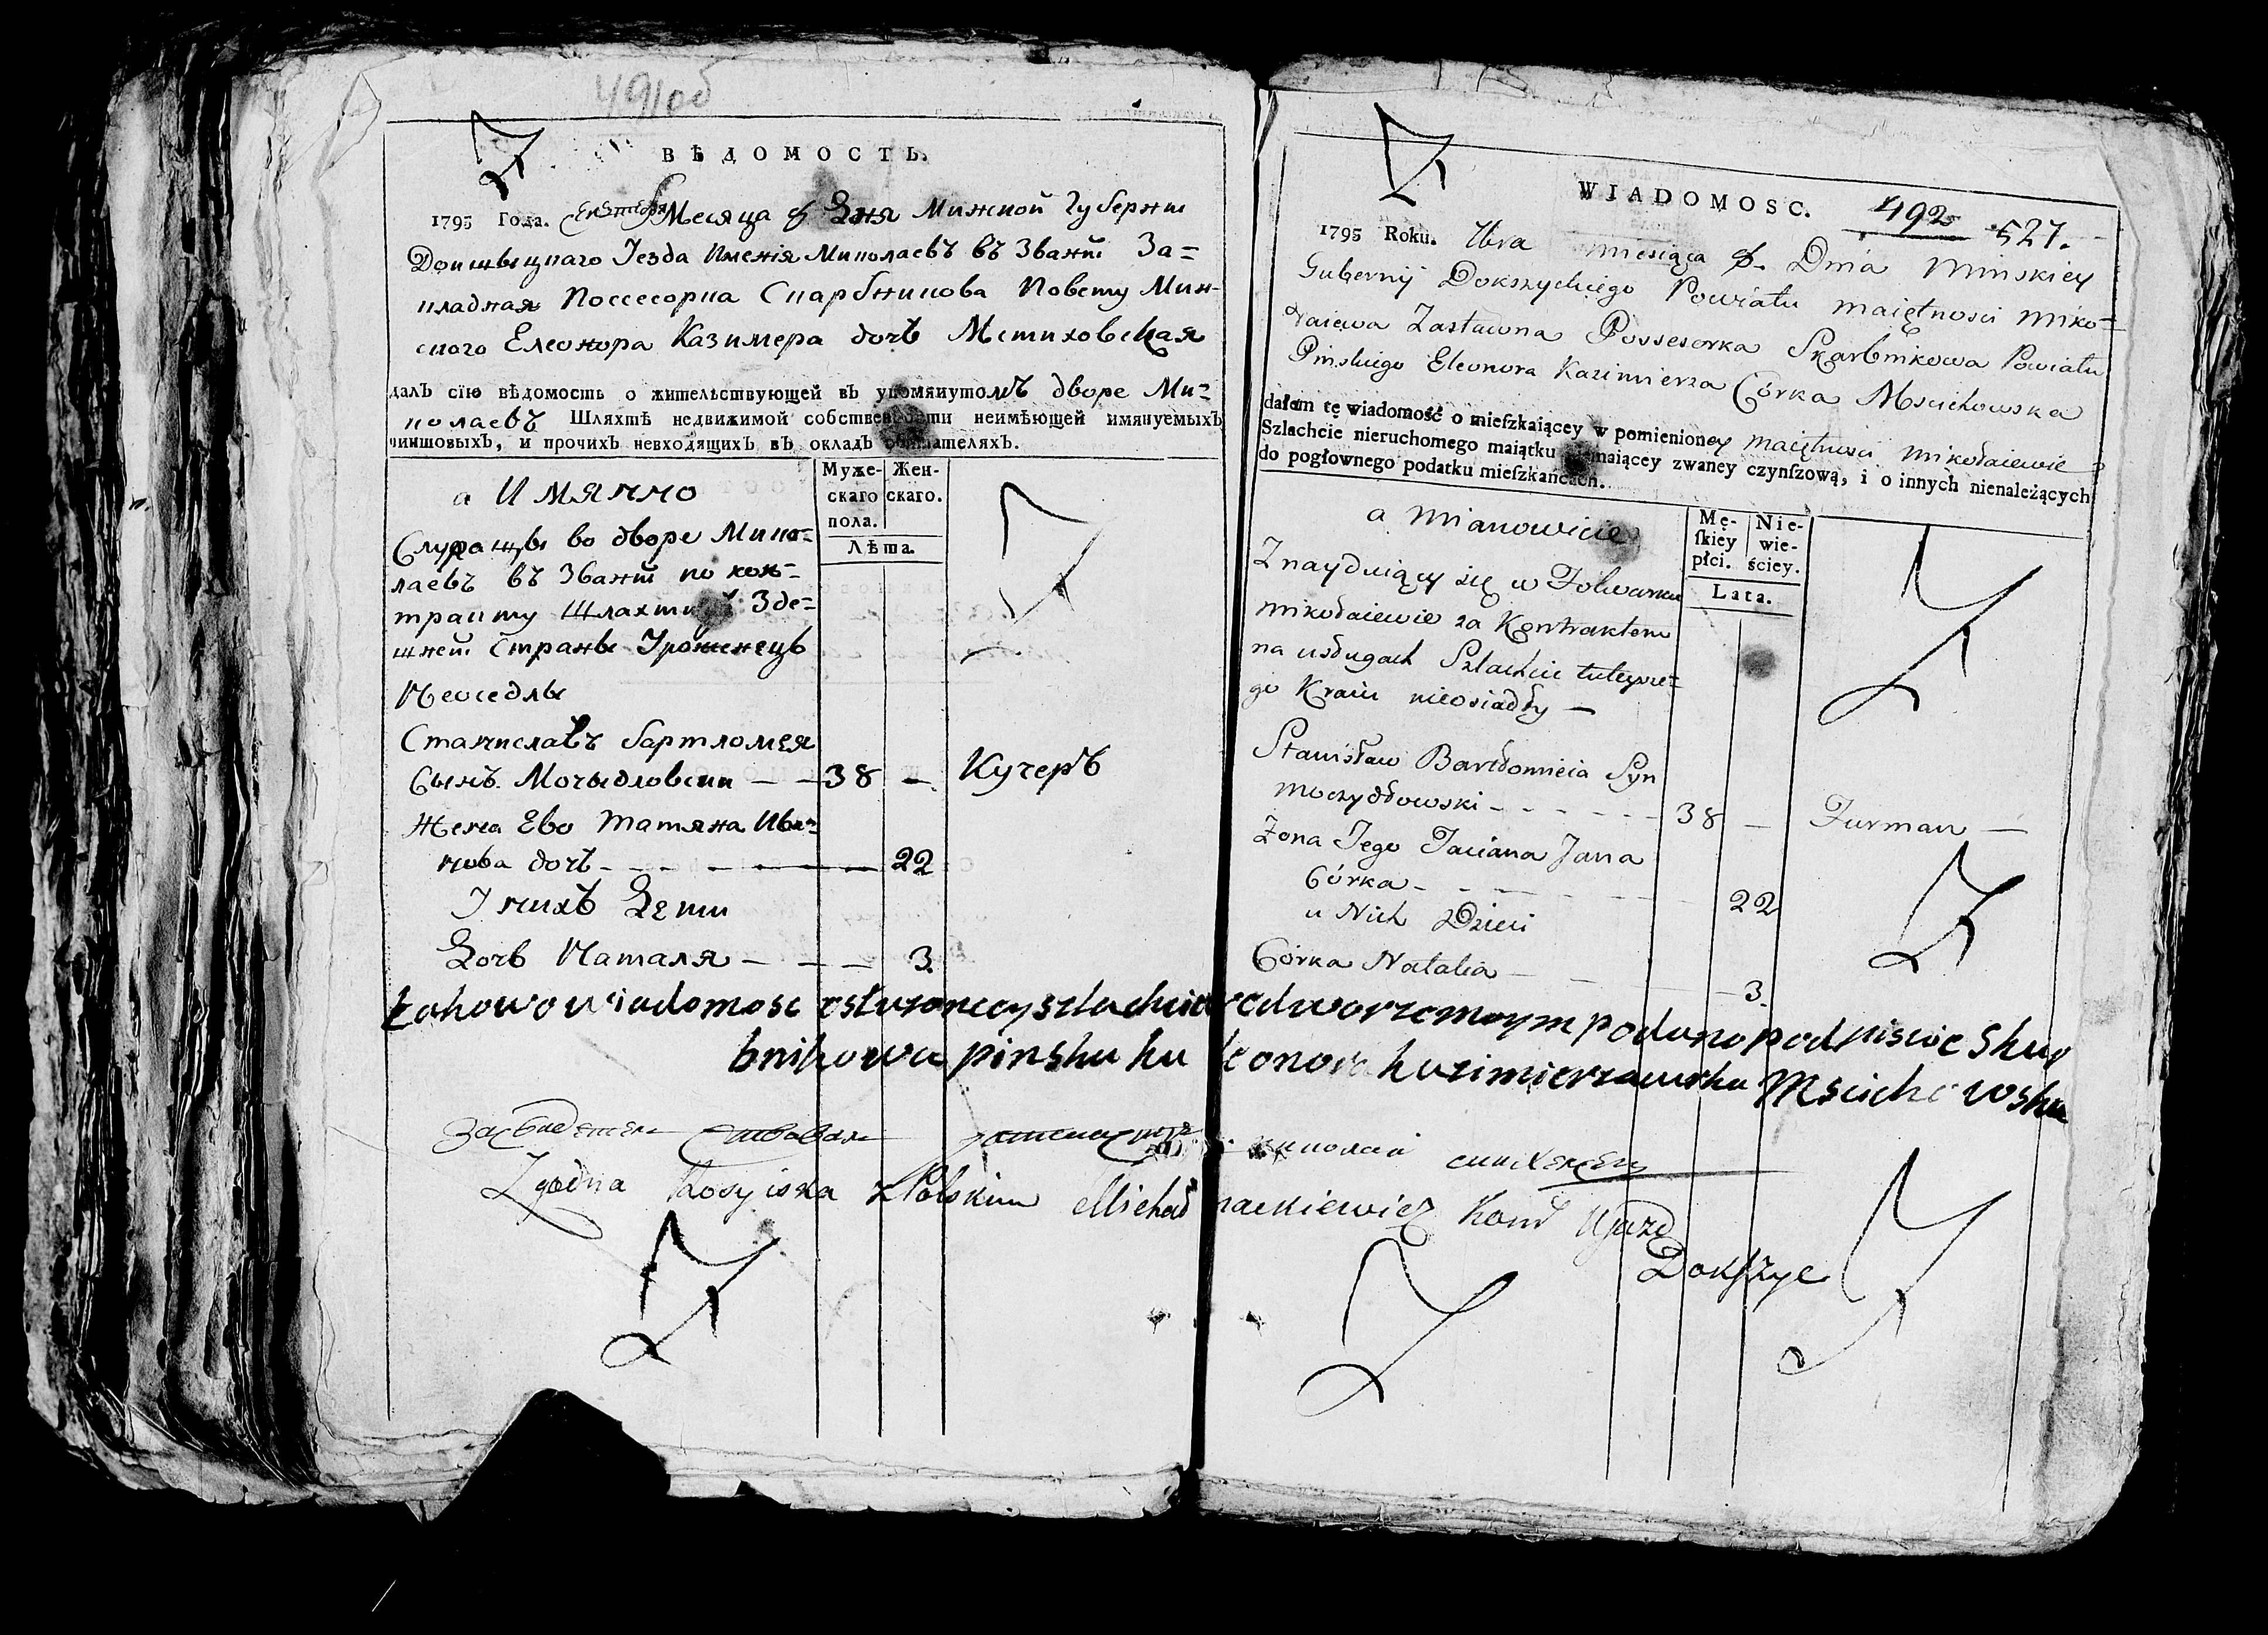 491об
ВѢДОМОСТЬ.
1795 Года. Сентебря Месяца Дня Минской Губернии
Докшыцкаго Уезда Имения Миколаевъ въ Звании За=
кладная Поссесорка Скарбникова Повету Мин-
ского Елеонора Казимера дочъ Мстиховская
далъ сїю вѣдомость о жительствующей въ упомянутомъ дворе Ми=
колаевъ Шляхтѣ недвижимой собственности неимѣющей имянуемыхъ
чиншовыхъ, и прочихъ невходящихъ въ окладъ обывателяхъ.
а Имянно
Муже-скаго пола. Жен-скаго.
Лѣта.
Служащы во дворе Мико=
лаевъ въ Звании по кон=
тракту Шляхтичъ Зде=
шней Страны Уроженецъ
Неоседлы
Станиславъ Бартломея
Сынъ Мочыдловски - - 38 - Кучеръ
Жена Ево Татяна Ива=
нова дочъ - - - 22
У нихъ Дети
Дочь Наталя - - - 3.
WIADOMOSC.
492 527.
1795 Roku. 7bra miesiąca Dnia Minskiey
Gubernij Dokszyckiego Powiatu maiętnosci Miko=
łaiewa Zastawna Possesorka Skarbnikowa Powiatu
Pinskiego Eleonora Kazimierza Córka Mscichowska
dałem tę wiadomość o mieſzkaiącey w pomienioney maiętnosci Mikołaiewie
Szlachcie nieruchomego maiątku niemaiącey zwaney czynſzową, i o innych nienależących
do pogłownego podatku mieſzkańcach.
a mianowicie
Mę-ſkiey płci. Nie-wie-ściey.
Lata.
Znayduiący się w Folwarku
Mikołaiewie za Kontraktem
na usługach Szlachcic tuteysze=
go Kraiu nieosiadły —
Stanisław Bartłomieia Syn
Moczydłowski - - - - - 38 — Furman —
Zona Jego Taciana Jana
Córka - - - 22
u Nich Dzieci
Córka Natalia — 3.
takowo wiadomosc osłuzoncey szlachcie wedworzemoym podano podpisuie Skar
bnikowa pinska leonora kazimierza curka Mscichowska
Zgodna Rosyiska z Polskim Michał Kom Ujazd
Dokſzyc